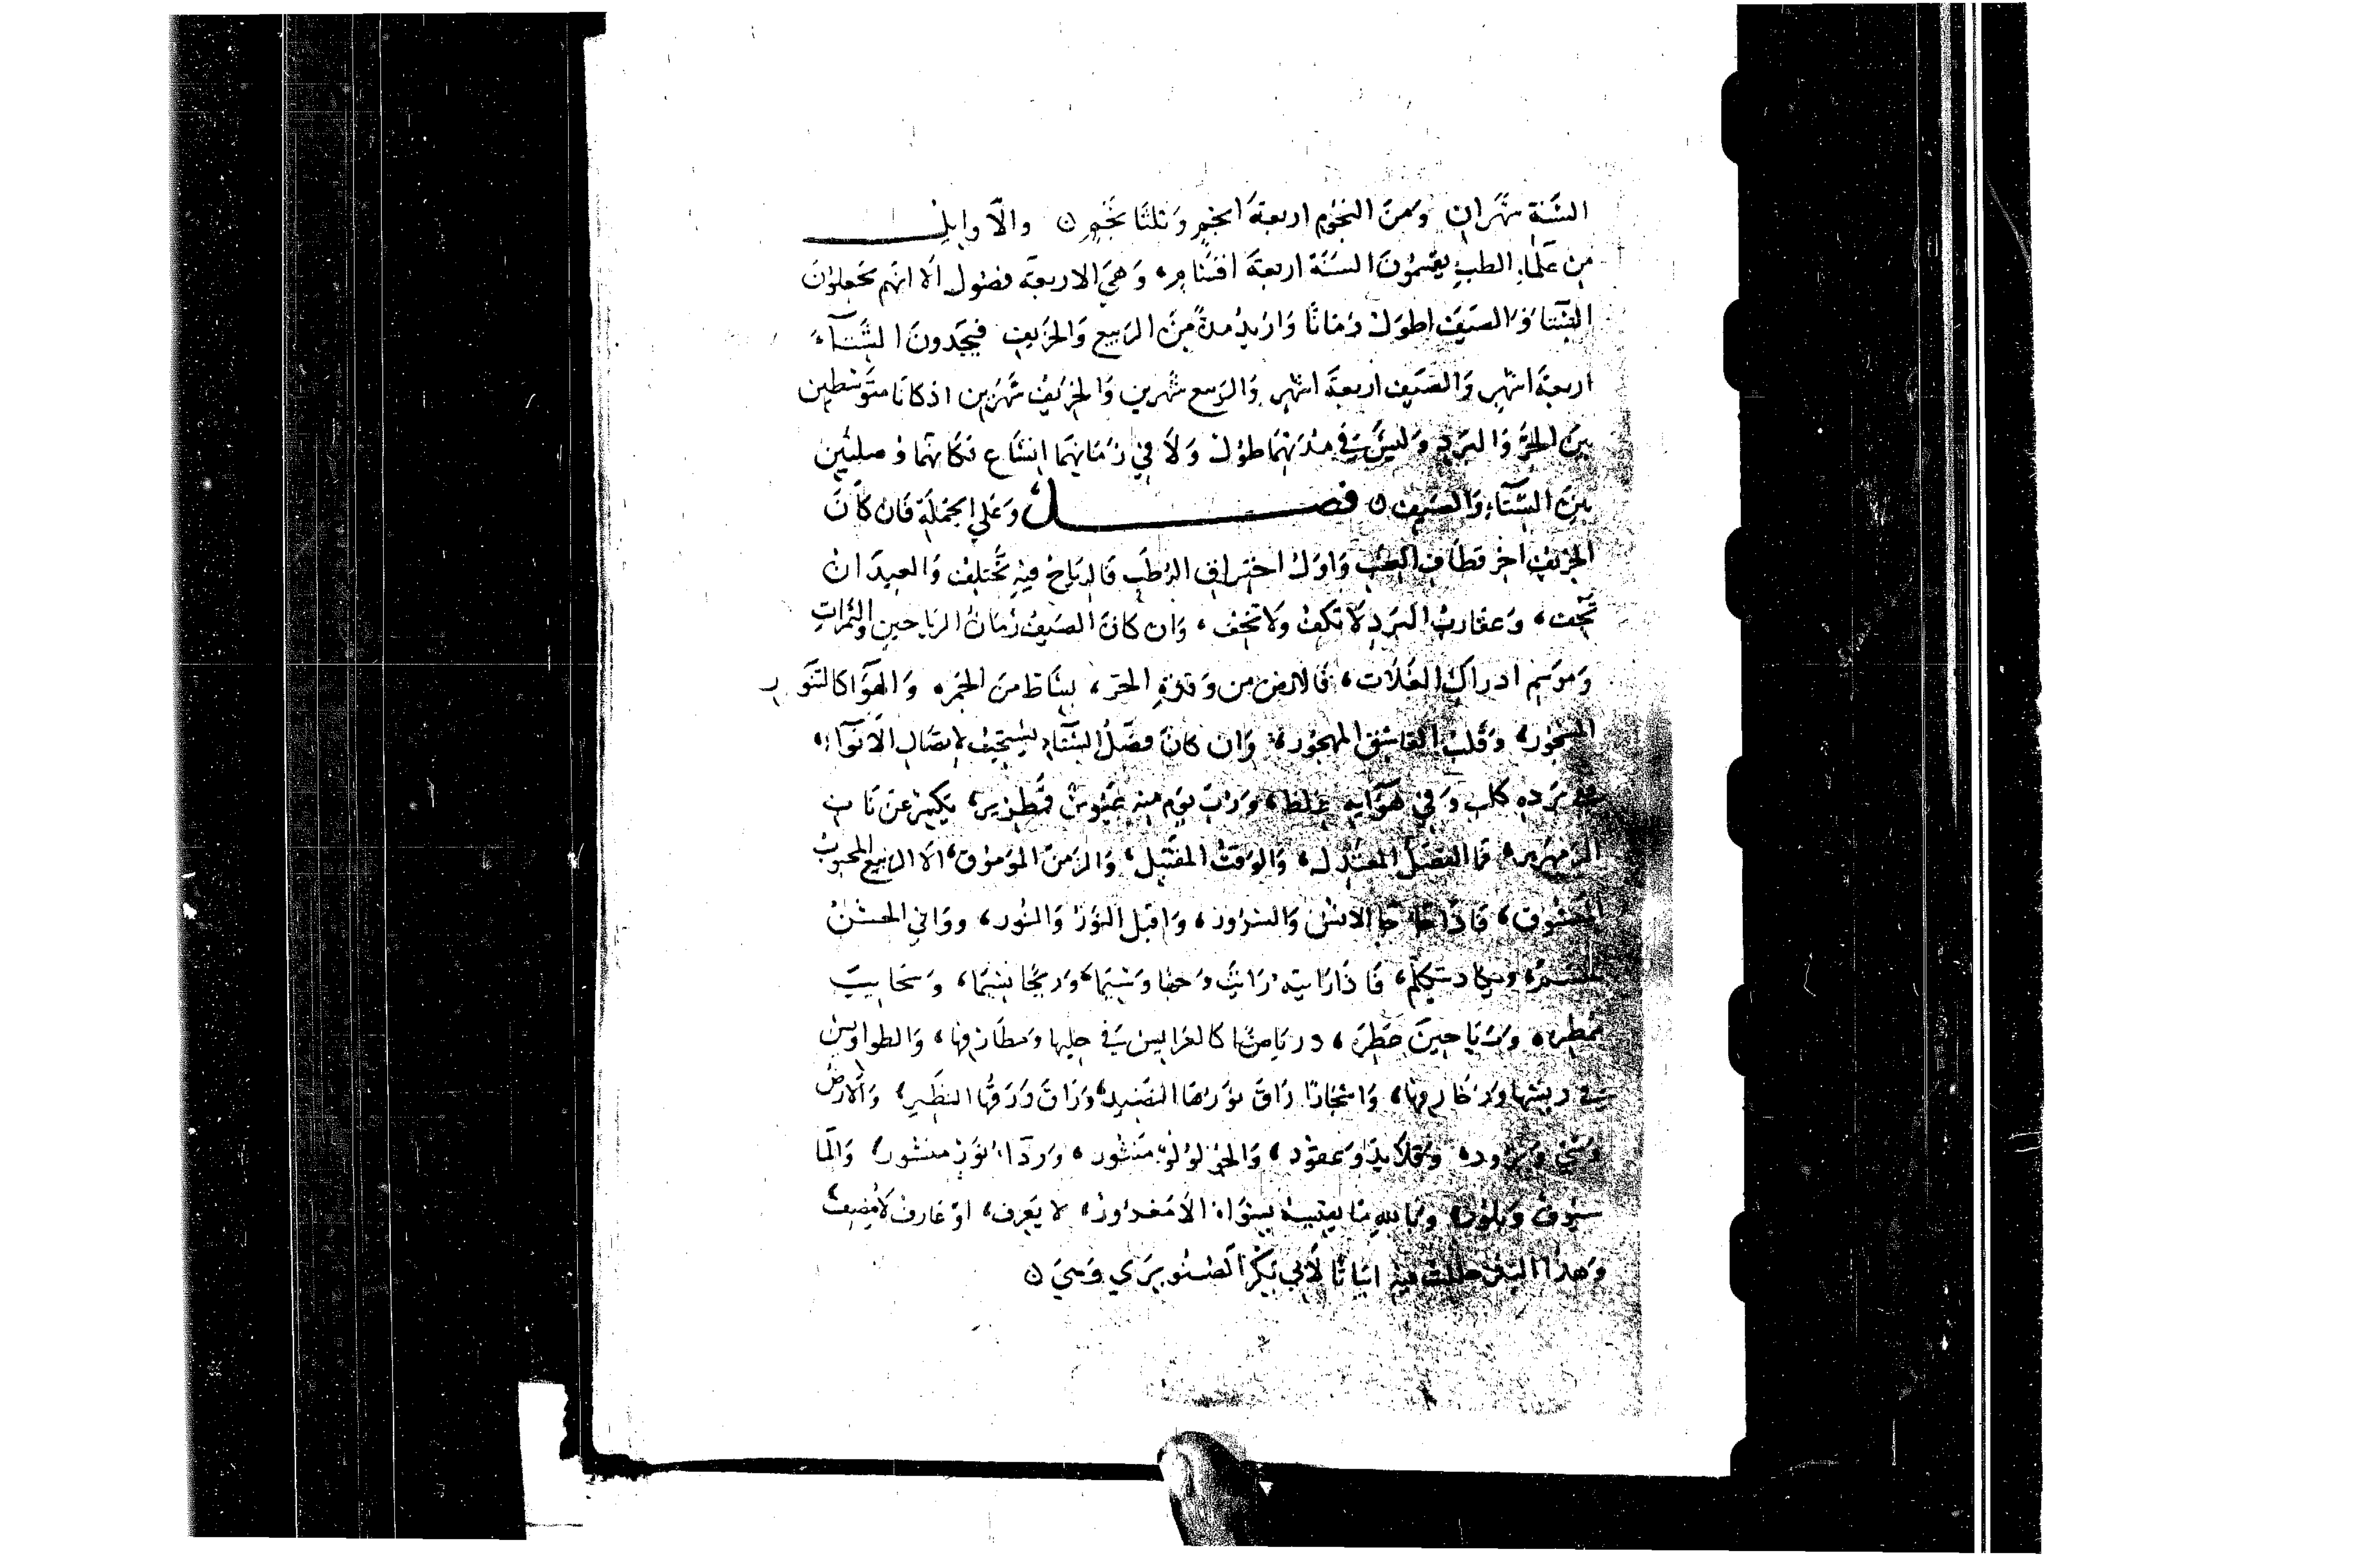 السَّنة شهْران ومن النجُوم اربعةَ انجمٍ وَثلثَا نجمٍ ٥ والأوايل
من علمَاءِ الطب يقسمُونَ السنَة اربعةَ اقسَامٍ، وَهيَ الاربعة فصُول الا انهم يجعلوُنَ
الشتاءَ وَالصيفَ اطولَ زمَانًا وَازيدُ مدةً مِنَ الربيع وَالخَريف فيجدونَ الشتَآءَ
اربعةَ اشهرٍ وَالصَيف اربعةَ اشهرٍ وَالربيع شهرين وَالخريفُ شهرَين اذ كانَا متوسّطين
بينَ الحَرّ وَالبرَدِ وَليسَ في مدتهمَا طولٌ وَلاَ في زمَانِهمَا اتسَاع فكَانهمَا وُصلتين
بينَ الشتَآءِ وَالصَيف ٥ فصل وَعَلى الجملَةِ فَان كانَ
الخريفُ اخرَ قطَافِ العنبِ وَاولَ اختراف الرُطَبِ فَالرياحُ فيهِ تختلف وَالعيدَان
تجف، وَعقاربُ البَردِ لاَ تكفُ ولاَ تخف، وَان كانَ الصَيفُ زمَانُ الريَاحين والثمَراتِ
وَموَسم ادراك الغلاَت، فَالارض من وَقدَةِ الحرّ، بسَاط منَ الجمَر، وَالهوَا كالتنّور
المسجُور، وَقلبُ العَاشق المهجوُر، وَان كانَ فصَلُ الشتَآءِ يستجيبُ لاتصَالِ الاَنوَآءِ،
ففي بَردهِ كلب وَفي هَوَايهِ غلظ، وَربّ يَومٍ منه عبُوسٌ قمطَرير، يَكشر عنَ نَاب
الزمهَرير، فمَا الفصَلُ المعتدل، وَالوَقتُ المقتبل، وَالزمَنُ الموَموُق، الاَ الربيع المحبوبُ
المعشُوق، فَاذا جَا جَا الانسُ وَالسرُور، وَاقبل النَوُرُ وَالنُور، ووَافى الحسْنُ
يتبسَمُ، ويكاد يتكلم، فَاذَا رَايتهُ رَايتَ وَجهًا وَسيمًا، وَريحًا نسيمًا، وَسحَاييبَ
ممطِره، وَريَاحينَ خطِرَه، وريَاضًا كالعَرايس في حليها وَمطَارفها، وَالطواويسُ
في ريشها وَزخارفها، وَاشجَارًا رَاقَ نوَرهَا النضَيد، وَرَاقَ وَرَقُها النظير، وَالاَرضُ
وَشيٌ وَبرُود، وَقلاَيدٌ وَعقوُد، وَالجو لوُلوٌ منثور، وَردَآءُ نوَرٍ منشور، وَالمَا
سيُوفٌ وَبلوُر، وَتاللهِ مَا يعتب بسوَاه الاَ مَغدُور، لا يعَرف، اوَ عَارفٌ لاَ يُنصف،
وَهذَا النثر حللت فيه ابيَاتًا لأبي بَكرٍ الصنوبَري وَهيَ ٥